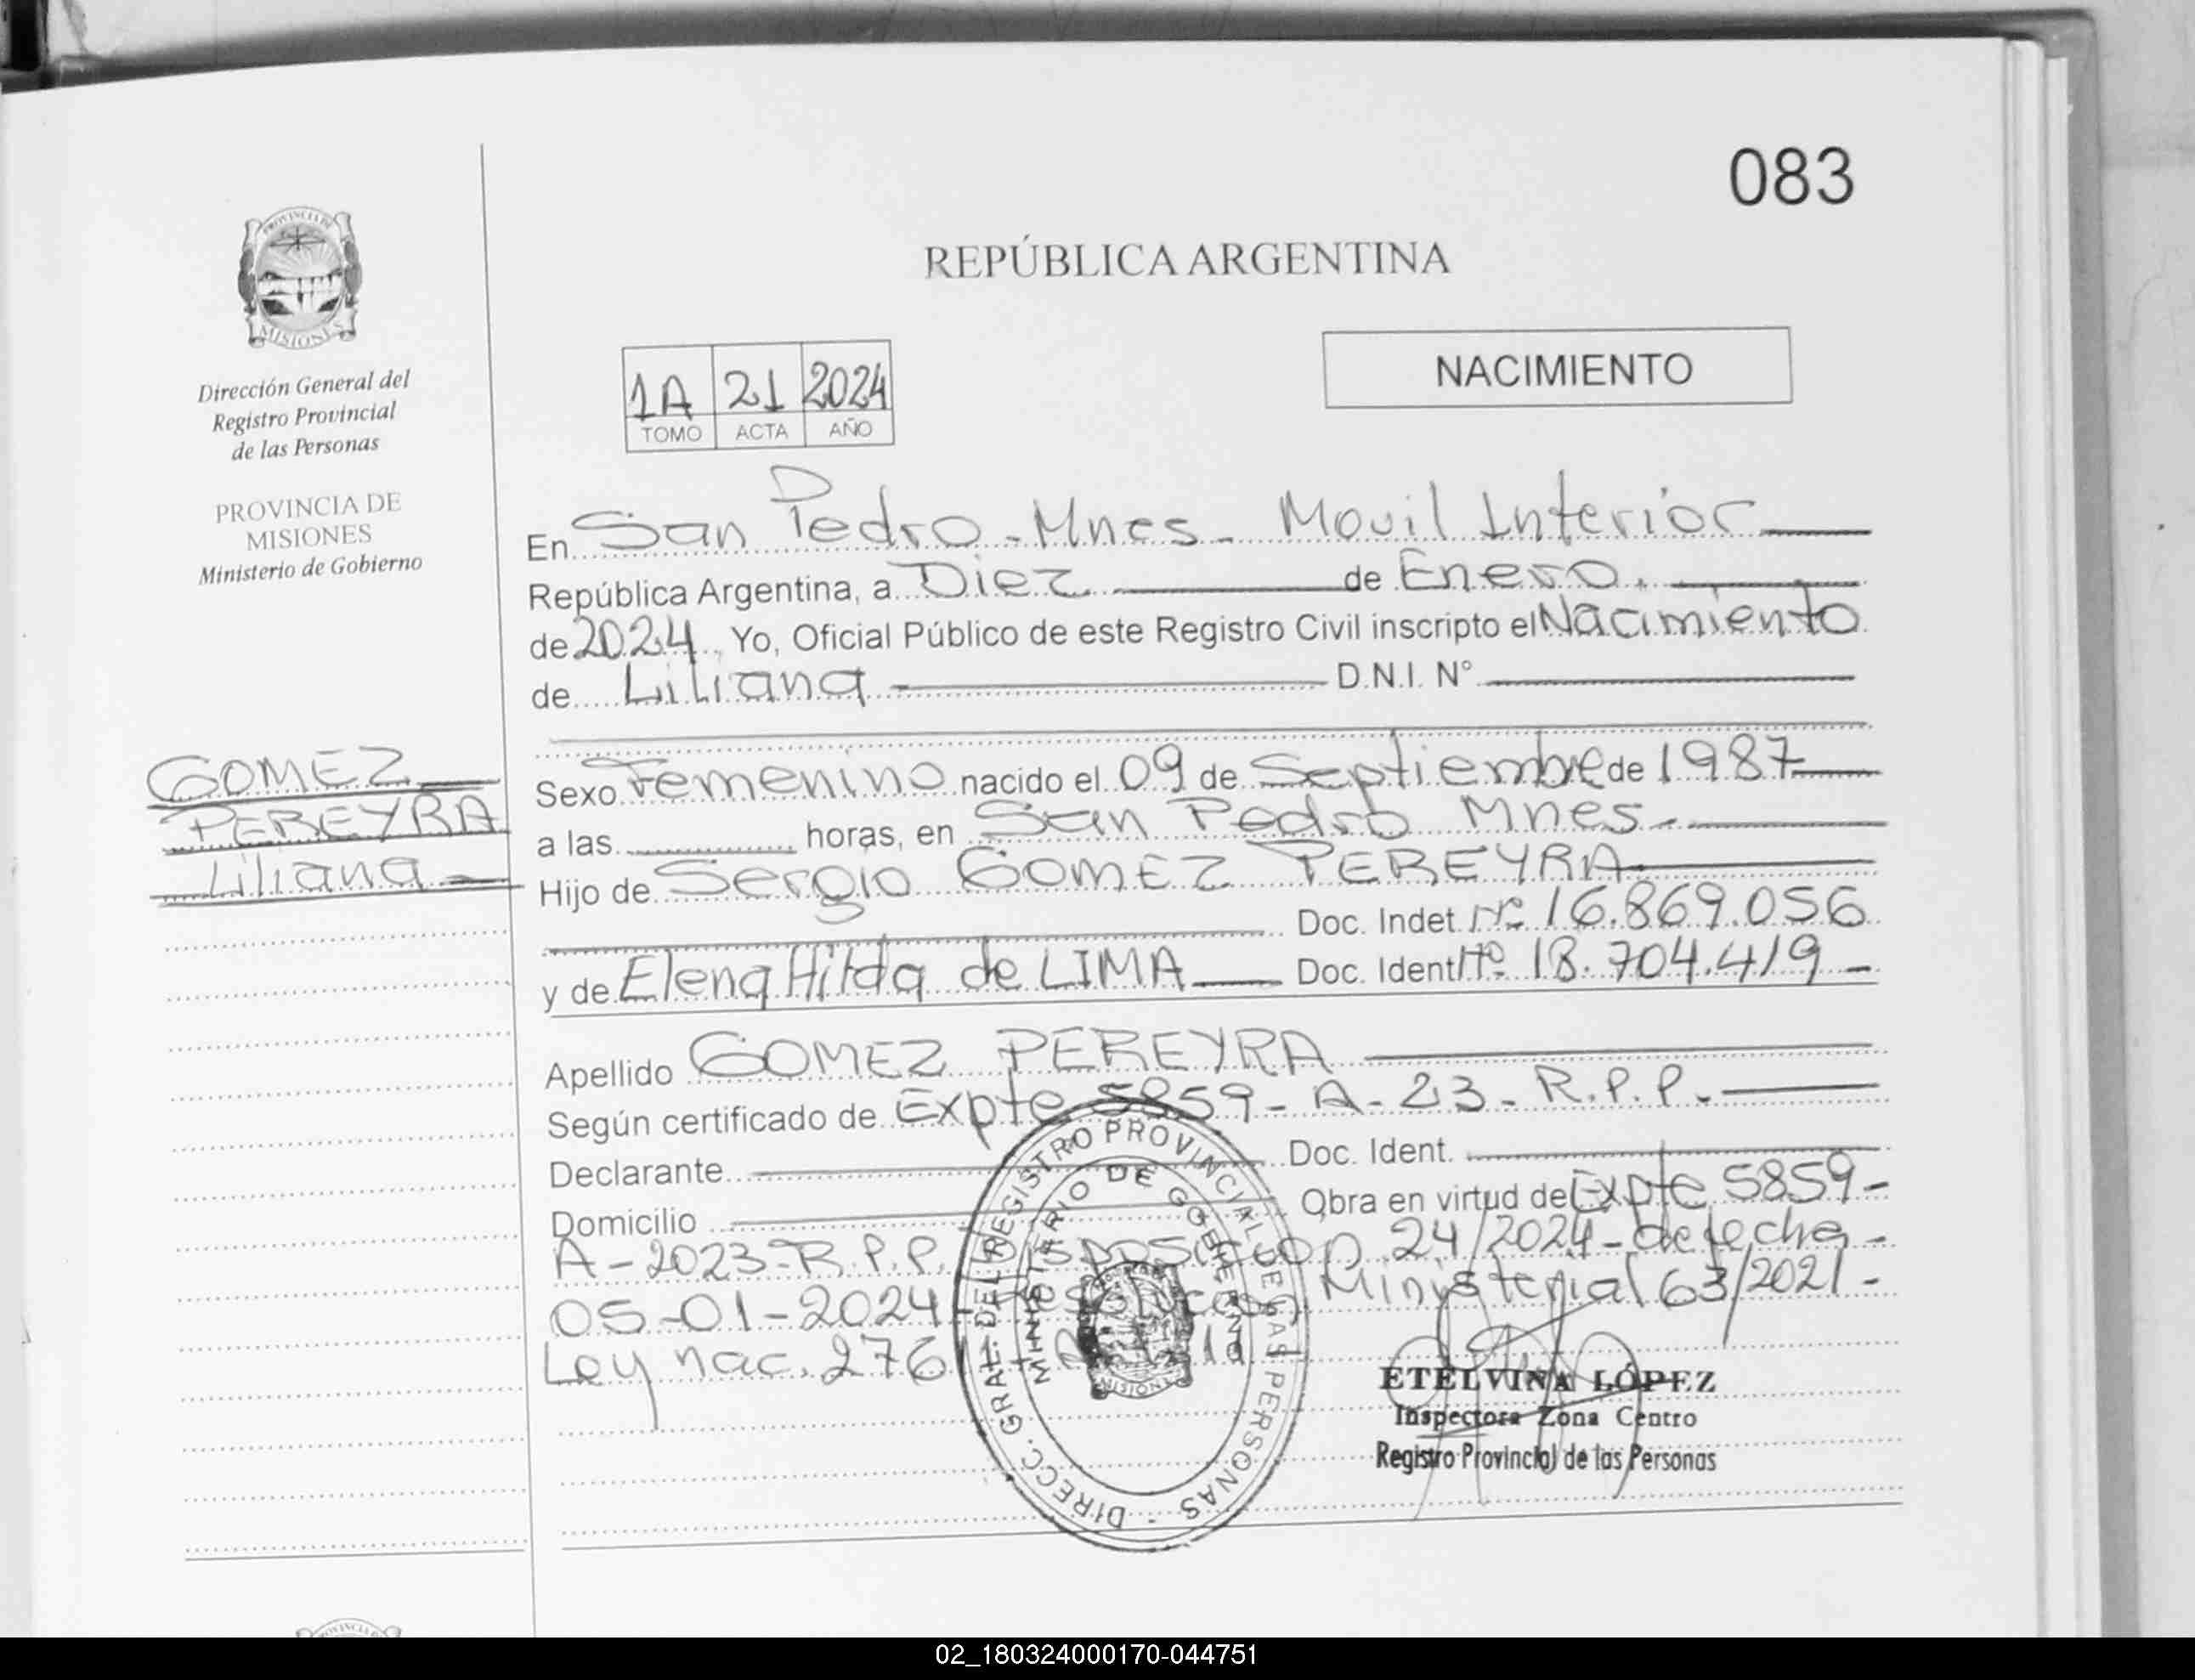 083
REPÚBLICA ARGENTINA
PROVINCIA DE
MISIONES
Dirección General del
Registro Provincial
de las Personas
PROVINCIA DE
MISIONES
Ministerio de Gobierno
GOMEZ
PEREYRA
Liliana
1A 21 2024
TOMO ACTA AÑO
NACIMIENTO
En San Pedro - Mnes - Movil Interior
República Argentina, a Diez de Enero
de 2024, Yo, Oficial Público de este Registro Civil inscripto el Nacimiento
de Liliana D.N.I. N°
Sexo Femenino nacido el 09 de Septiembre de 1987
a las horas, en San Pedro Mnes -
Hijo de Sergio GOMEZ PEREYRA
Doc. Indet. N° 16.869.056
y de Elena Hilda de LIMA Doc. Ident. N° 18.704.419 -
Apellido GOMEZ PEREYRA
Según certificado de Expte 5859 - A - 23 - R.P.P. -
Declarante Doc. Ident.
Domicilio Obra en virtud de Expte 5859 -
A - 2023 - R.P.P. Disposicion 24/2024 - de fecha -
05-01-2024 - Resolucion Ministerial 63/2021 -
Ley nac. 276
DIRECC. GRAL. DEL REGISTRO PROVINCIAL DE LAS PERSONAS -
MINISTERIO DE GOBIERNO
MISIONES
ETELVINA LÓPEZ
Inspectora Zona Centro
Registro Provincial de las Personas
02_180324000170-044751